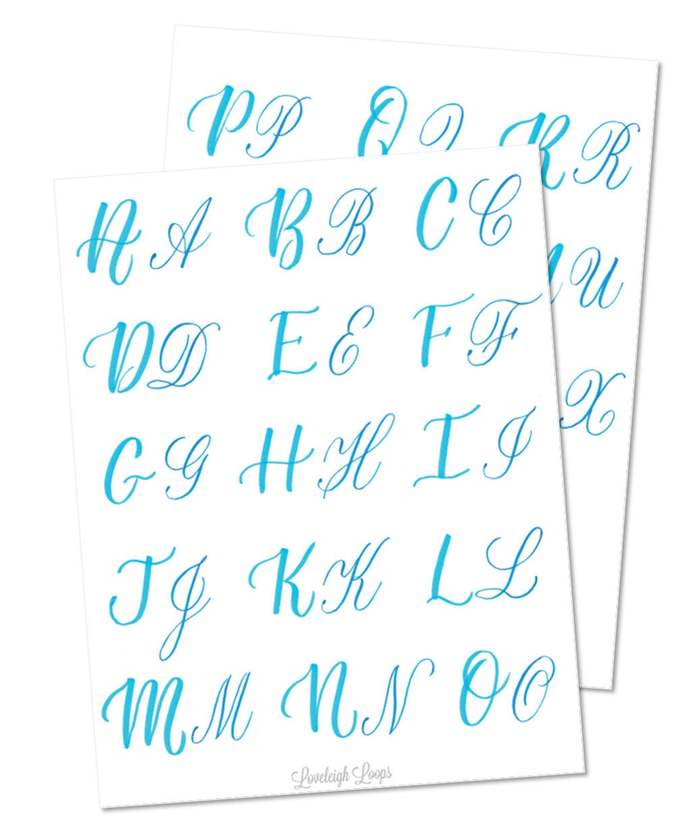 P P Q Q R R
U
X
A A B B C C
D D E E F F
G G H H I I
J J K K L L
M M N N O O
Loveleigh Loops